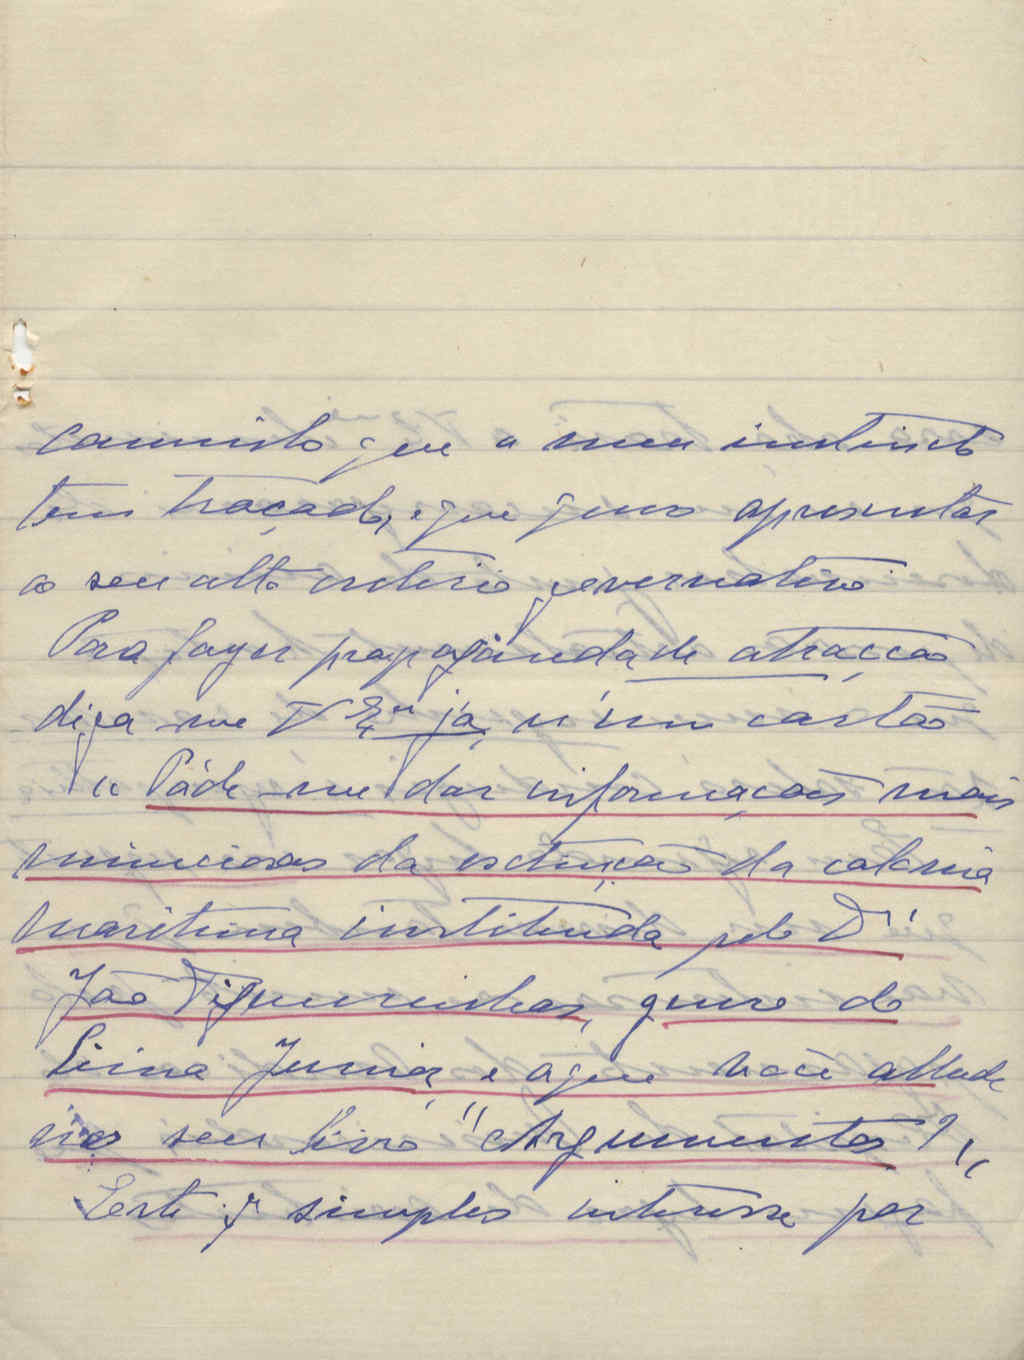 caminho que o meu instincto
tem traçado, e que quero apresentar
ao seu alto criterio governativo
Para fazer propaganda de atracção
diga-me V Exª já, n'um cartão
" Póde-me dar informações mais
minuciosas da extinção da colonia
maritima instituida pelo Dr
João Figueirinhas, genro do
Lima Junior, e a que você allude
no seu livro "Argumentos"?"
Este simples interesse por